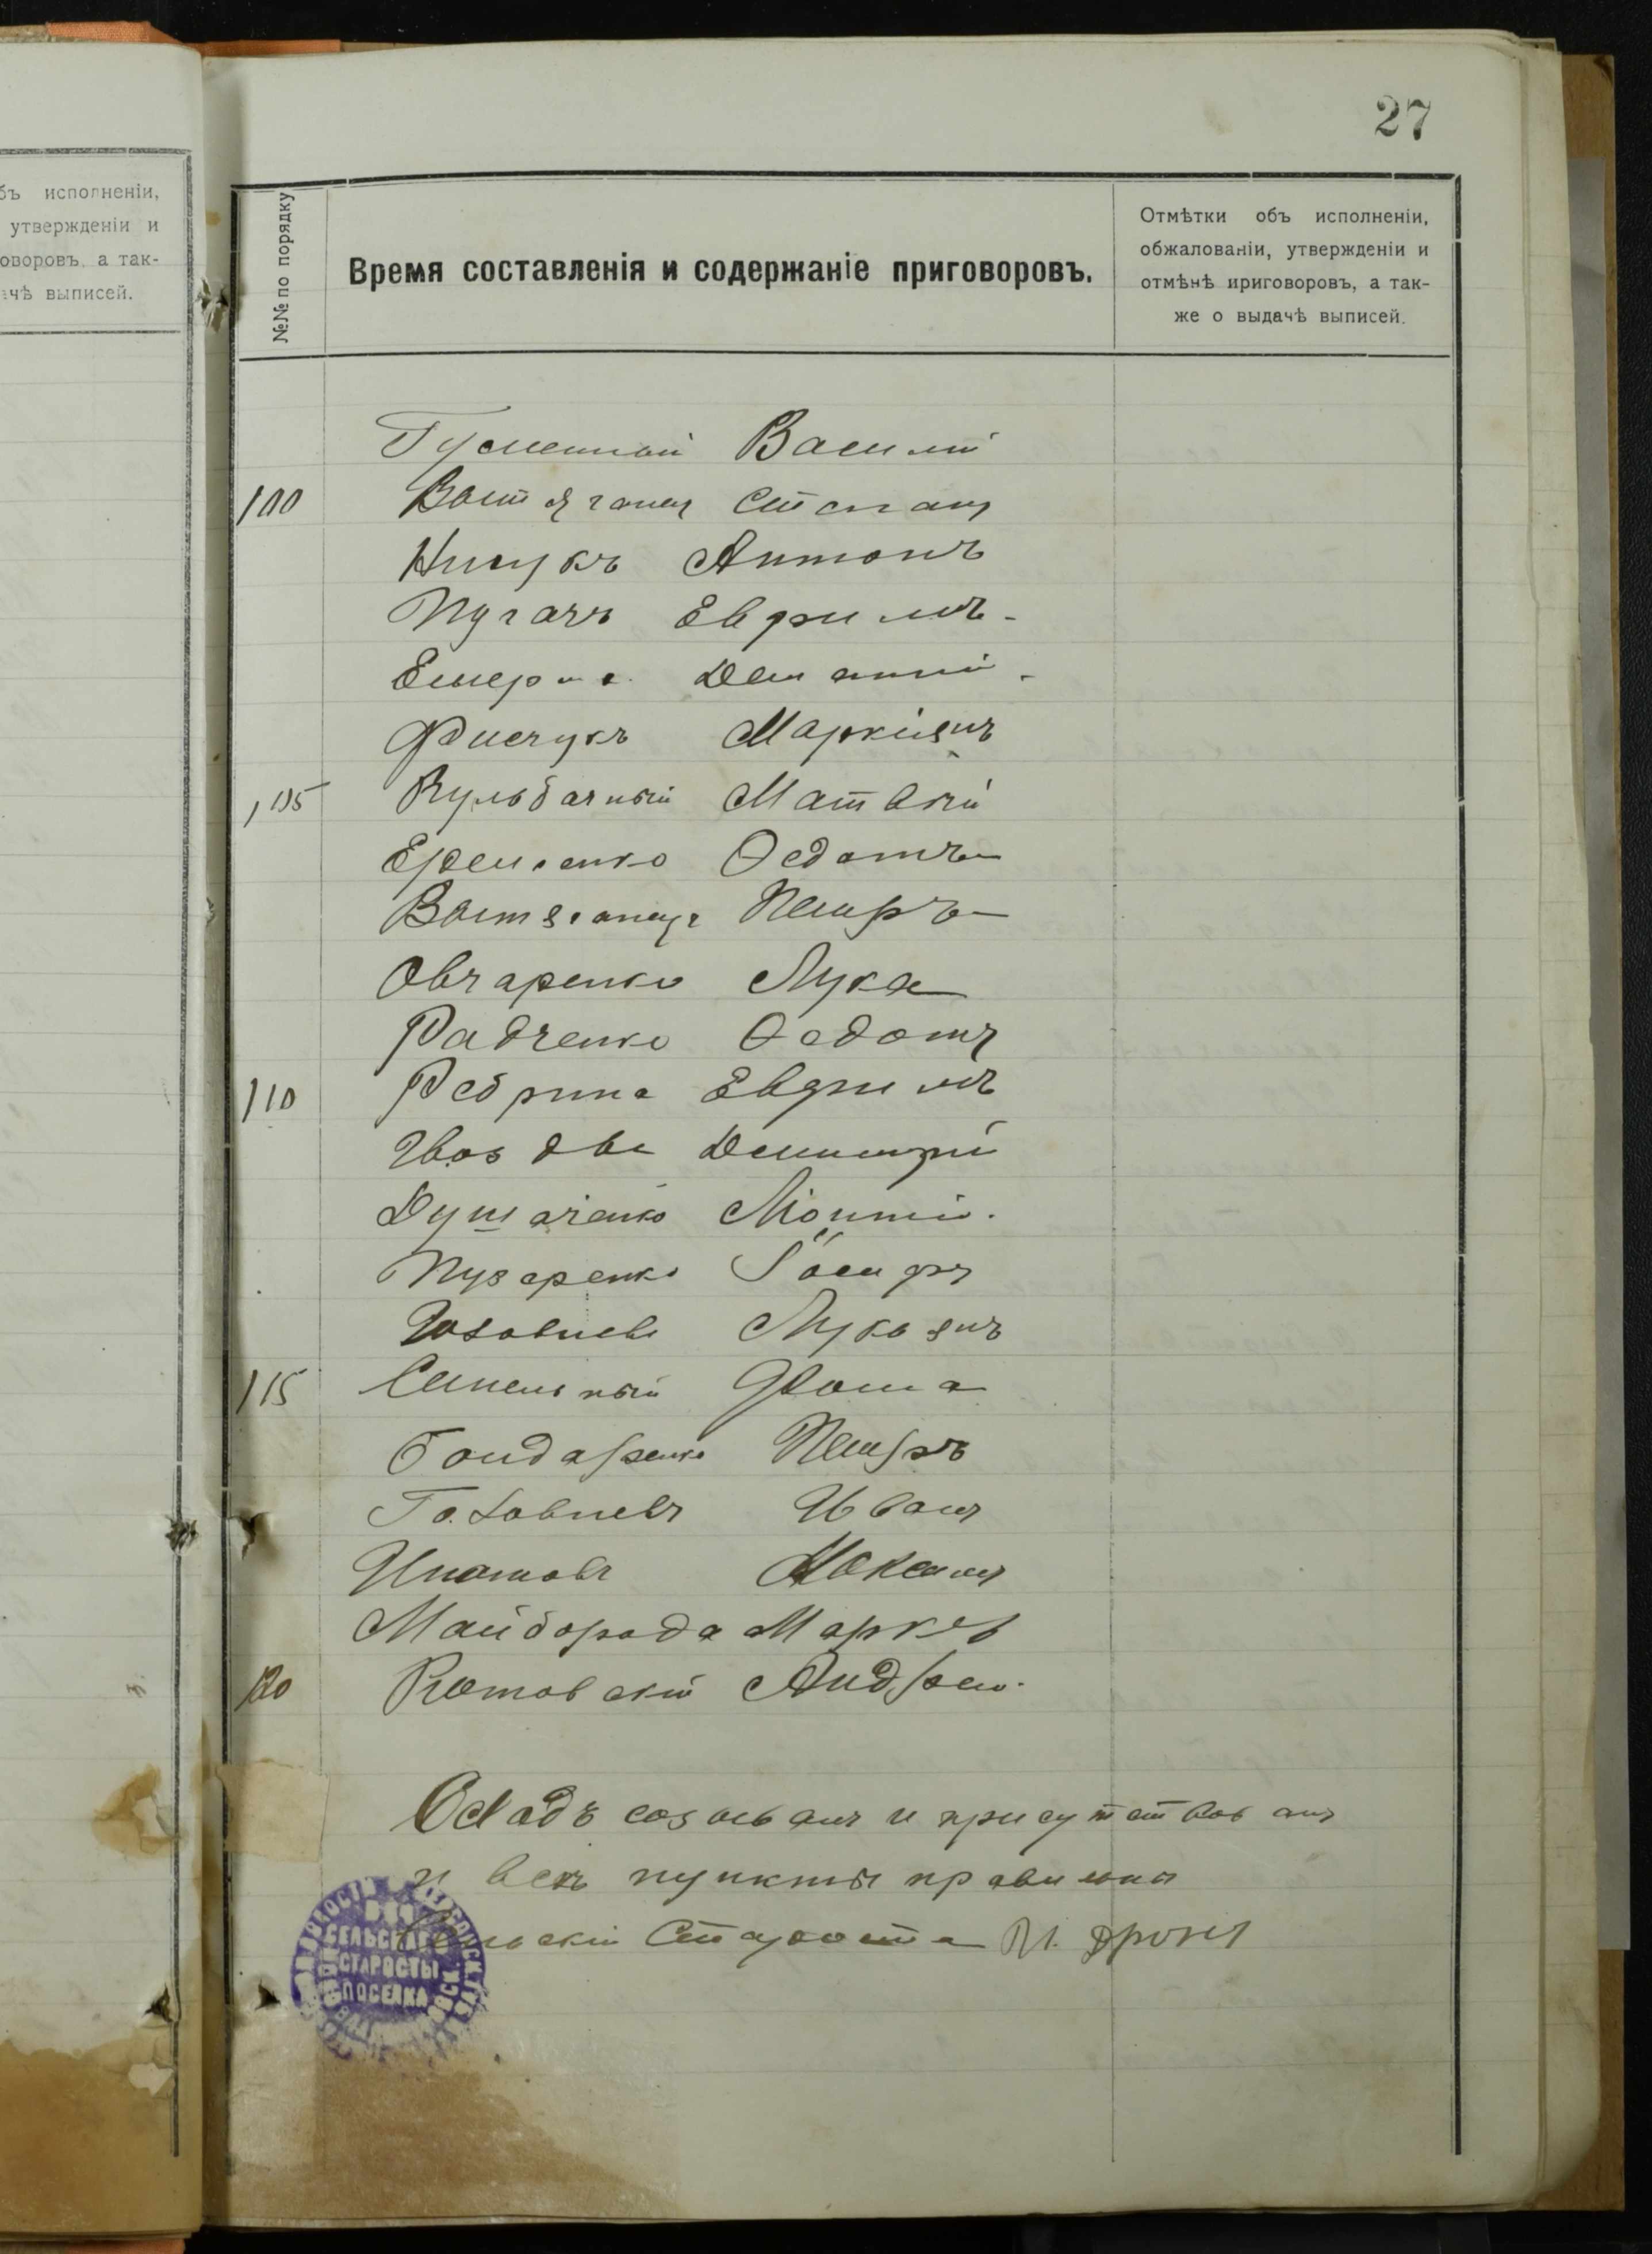 27
бъ исполненіи,
утвержденіи и
оворовъ, а так-
ачѣ выписей.
№№ по порядку
Время составленія и содержаніе приговоровъ.
Отмѣтки объ исполненіи,
обжалованіи, утвержденіи и
отмѣнѣ ириговоровъ, а так-
же о выдачѣ выписей.
Василій
100 Степанъ
Антонъ
Пугачъ Евфимъ
Фисчукъ Маркіянъ
105 Кульбачный Матвѣй
Еременко Ѳедотъ
Петръ
Овчаренко Лука
Радченко Ѳедотъ
110 Ребрина Евфимъ
Дмитрій
Душаченко
Пузаренко Іосифъ
Головневъ Лукьянъ
115 Синельный Фома
Бондаренко Петръ
Головневъ Иванъ
Игнатовъ Максимъ
Майборода Марко
120 Котовскій Андрей
созыванъ и присутствовалъ
и всѣ пункты правильны
Сельскій Староста
СЕЛЬСКАГО
СТАРОСТЫ
ПОСЕЛКА